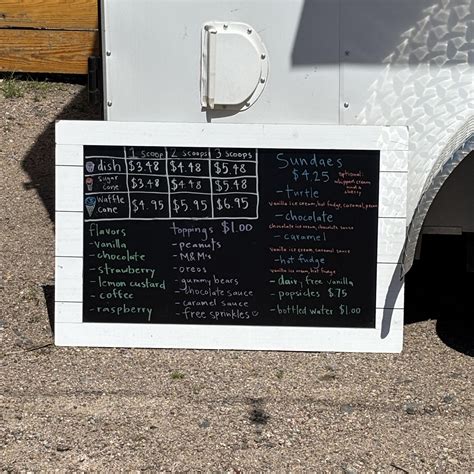 1 scoop 2 scoops 3 scoops
dish $3.48 $4.48 $5.48
Sugar cone $3.48 $4.48 $5.48
Waffle cone $4.95 $5.95 $6.95
Flavors
- vanilla
- chocolate
- strawberry
- lemon custard
- coffee
- raspberry
toppings $1.00
- peanuts
- M&M's
- oreos
- gummy bears
- chocolate sauce
- caramel sauce
- free sprinkles
Sundaes
$4.25 optional:
whipped cream
and a
cherry
- turtle
vanilla ice cream, hot fudge, caramel, pecans
- chocolate
chocolate ice cream, chocolate sauce
- caramel
vanilla ice cream, caramel sauce
- hot fudge
vanilla ice cream, hot fudge
- dairy free vanilla
- popsicles $.75
- bottled water $1.00